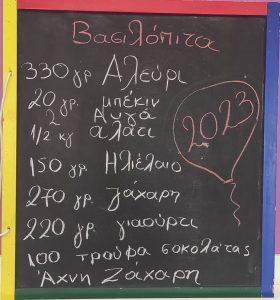 Βασιλόπιτα
330 γρ. Αλεύρι
20 γρ. μπέκιν
2 Αυγά
1/2 κγ αλάτι
150 γρ. Ηλιέλαιο
270 γρ. ζάχαρη
220 γρ. γιαούρτι
100 τρούφα σοκολάτας
Άχνη Ζάχαρη
2023